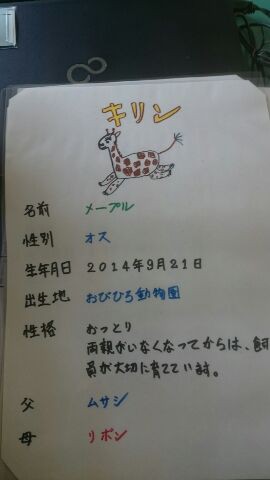 キリン
名前 メープル
性別 オス
生年月日 2014年9月21日
出生地 おびひろ動物園
性格 おっとり
両親がいなくなってからは、飼
員が大切に育てています。
父 ムサシ
母 リボン